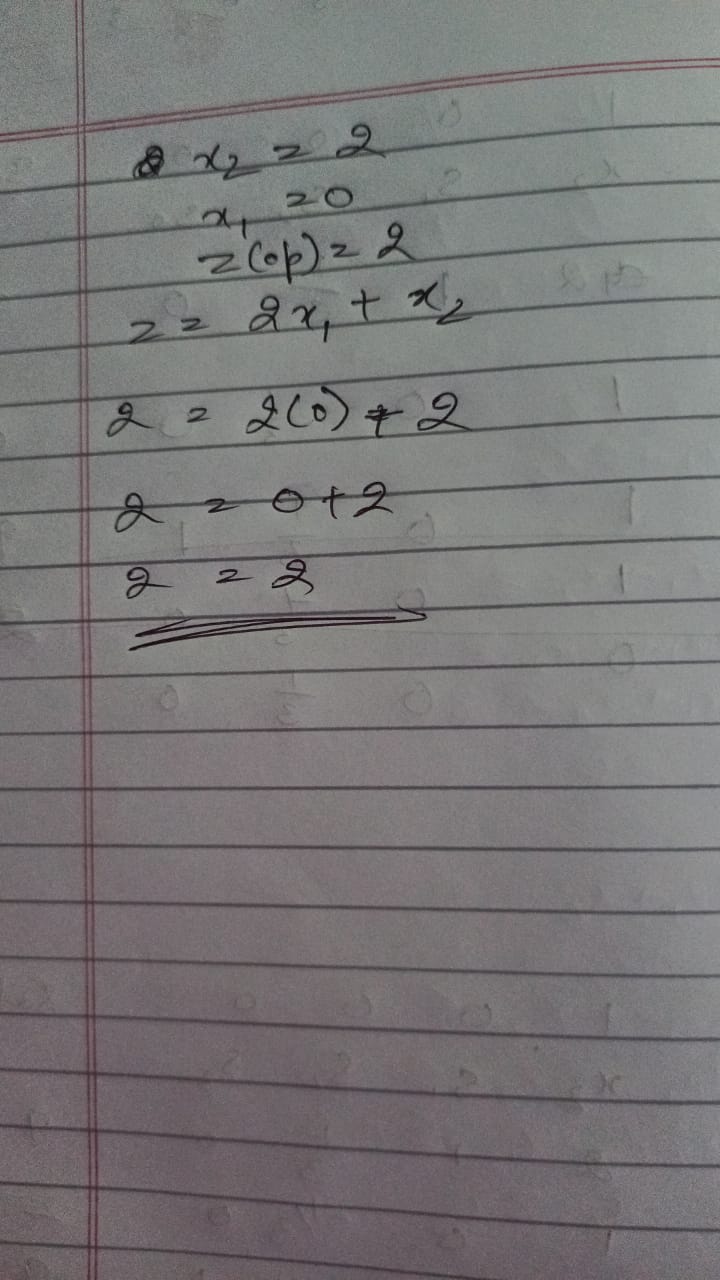 x₂ = 2
x₁ = 0
z(op) = 2
z = 2x₁ + x₂
2 = 2(0) + 2
2 = 0 + 2
2 = 2